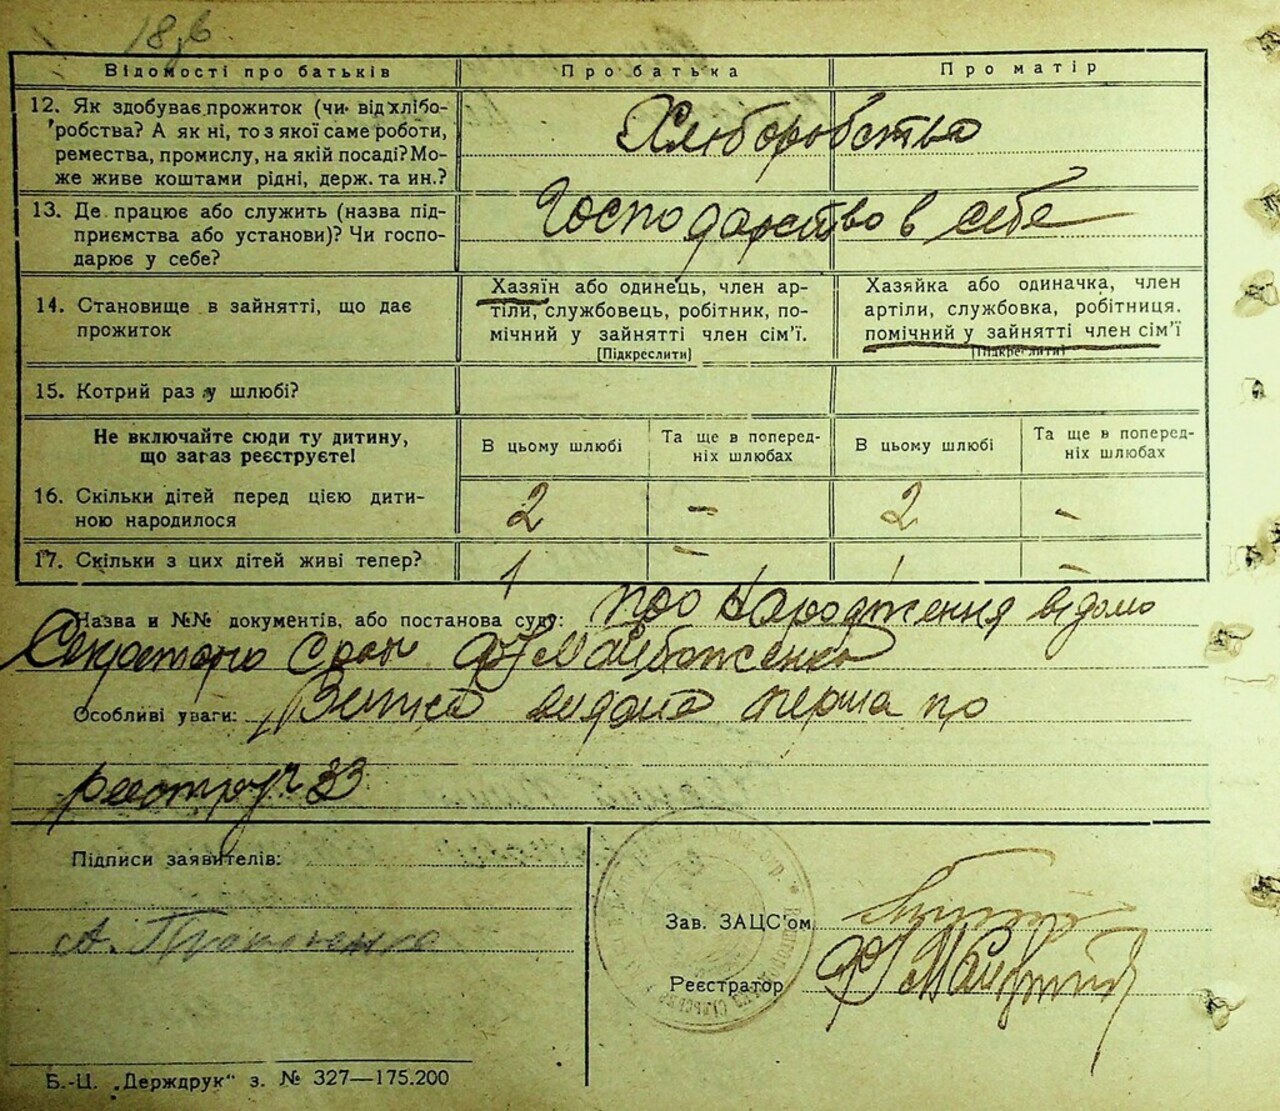 18 зв
Відомості про батьків
Про батька
Про матір
12. Як здобуває прожиток (чи від хлібо-
робства? А як ні, то з якої саме роботи,
ремества, промислу, на якій посаді? Мо-
же живе коштами рідні, держ. та ин.?
Хліборобства
13. Де працює або служить (назва під-
приємства або установи)? Чи госпо-
дарює у себе?
Господарство в себе
14. Становище в зайнятті, що дає
прожиток
Хазяїн або одинець, член ар-
тіли, службовець, робітник, по-
мічний у зайнятті член сім'ї.
[Підкреслити]
Хазяйка або одиначка, член
артіли, службовка, робітниця.
помічний у зайнятті член сім'ї
[Підкреслити]
15. Котрий раз у шлюбі?
Не включайте сюди ту дитину,
що загаз реєструєте!
В цьому шлюбі
Та ще в поперед-
ніх шлюбах
В цьому шлюбі
Та ще в поперед-
ніх шлюбах
16. Скільки дітей перед цією дити-
ною народилося
2 - 2 -
17. Скільки з цих дітей живі тепер?
1 - 1 -
Назва и №№ документів, або постанова суду: про народження відомо
Секретарю
Особливі уваги: видана перша по
реєстру 33
Підписи заявителів:
А.
Зав. ЗАЦС'ом
Реєстратор
Б.-Ц. „Держдрук“ з. № 327—175.200